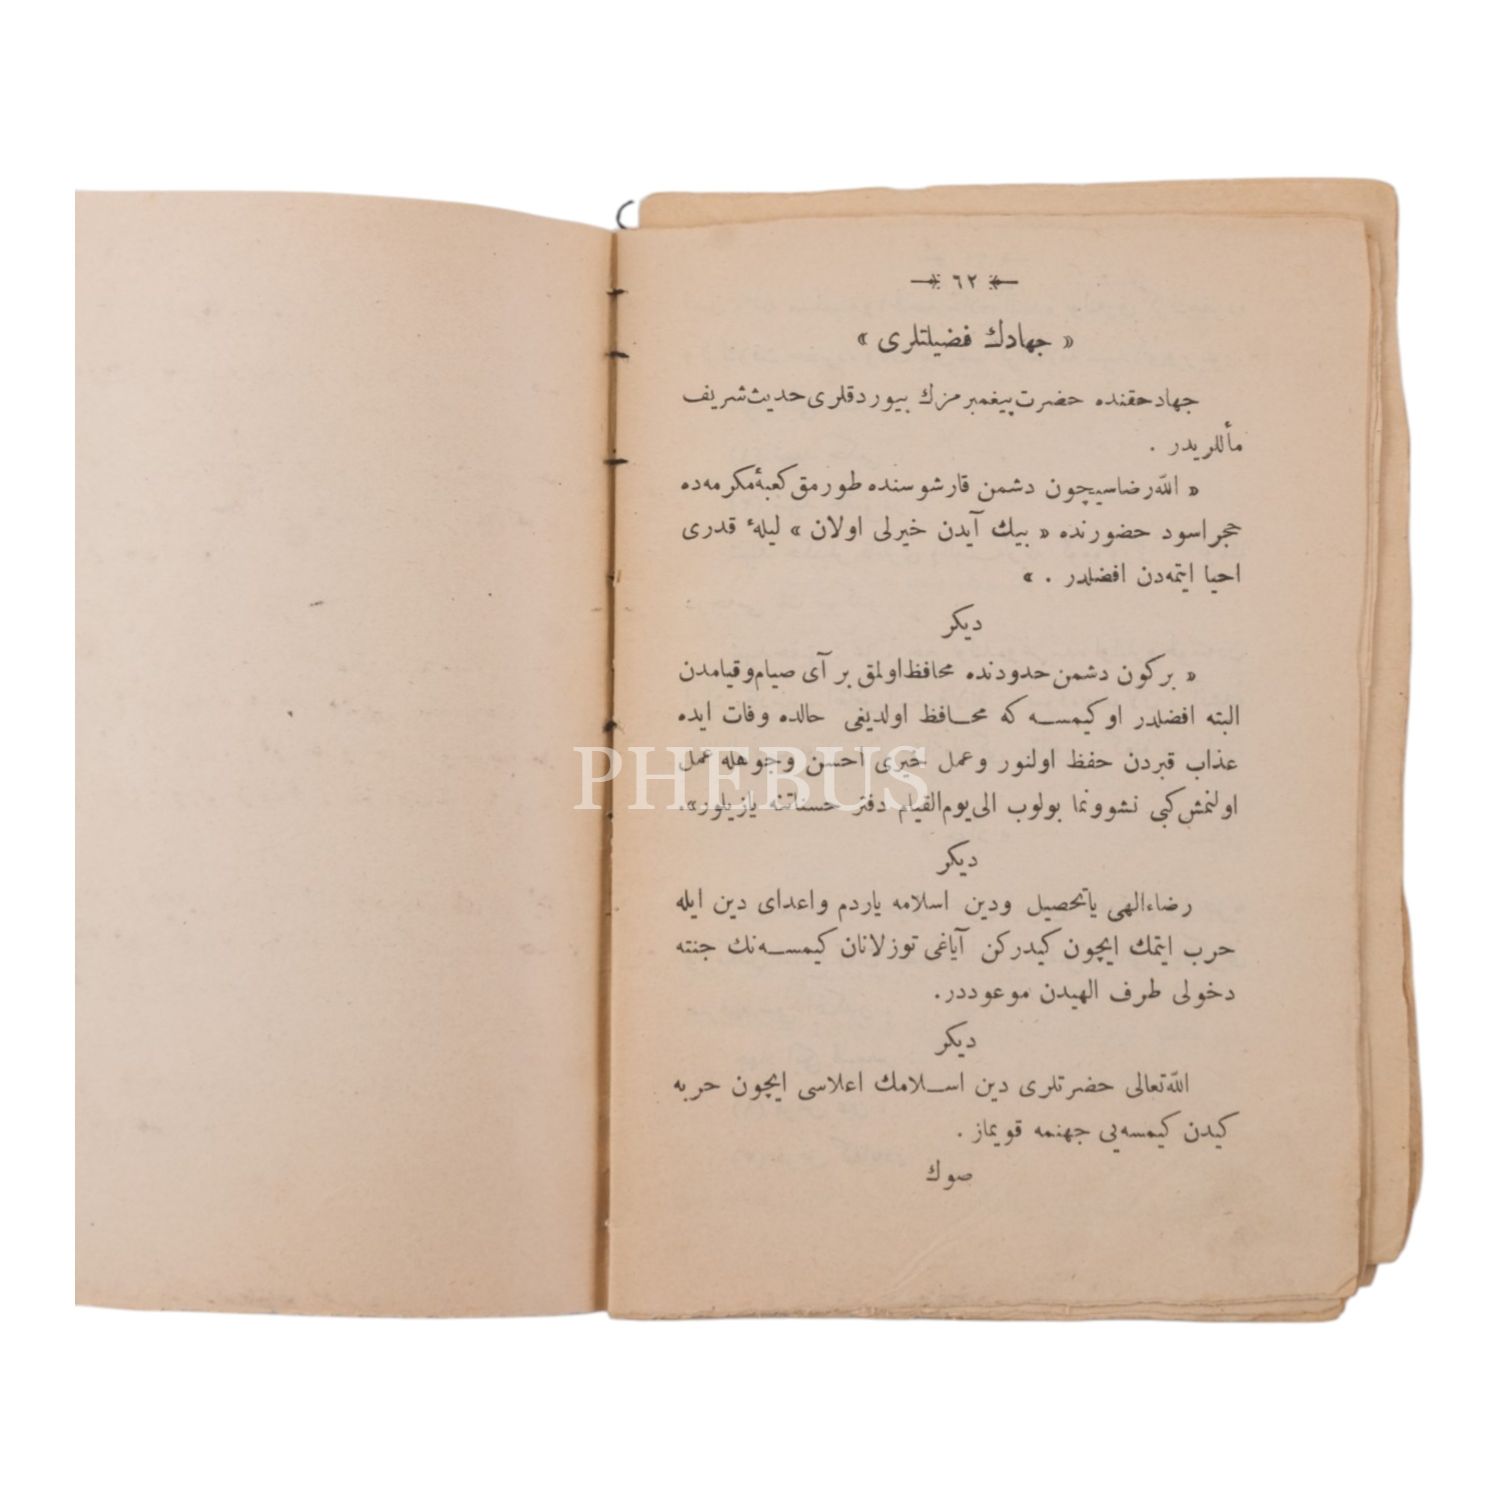 ٦٢
« جهادك فضيلتلرى »
جهاد حقنده حضرت پيغمبرمزك بيوردقلرى حديث شريف
مأللريدر .
« الله رضاسيچون دشمن قارشوسنده طورمق كعبۀ مكرمه‌ده
حجر اسود حضورنده « بيك آيدن خيرلى اولان » ليلۀ قدرى
احيا ايتمه‌دن افضلدر . »
ديكر
« بركون دشمن حدودنده محافظ اولمق بر آى صيام و قيامدن
البته افضلدر او كيمسه كه محافظ اولديغى حالده وفات ايده
عذاب قبردن حفظ اولنور و عمل خيرى احسن وجوهله عمل
اولنمش كبى نشوونما بولوب الى يوم القيام دفتر حسناتنه يازيلور».
ديكر
رضاء الهى يا تحصيل ودين اسلامه ياردم واعداى دين ايله
حرب ايتمك ايچون كيدركن آياغى توزلانان كيمسه‌نك جنته
دخولى طرف الهيدن موعوددر.
ديكر
الله تعالى حضرتلرى دين اسلامك اعلاسى ايچون حربه
كيدن كيمسه‌يى جهنمه قويماز .
صوك
PHEBUS